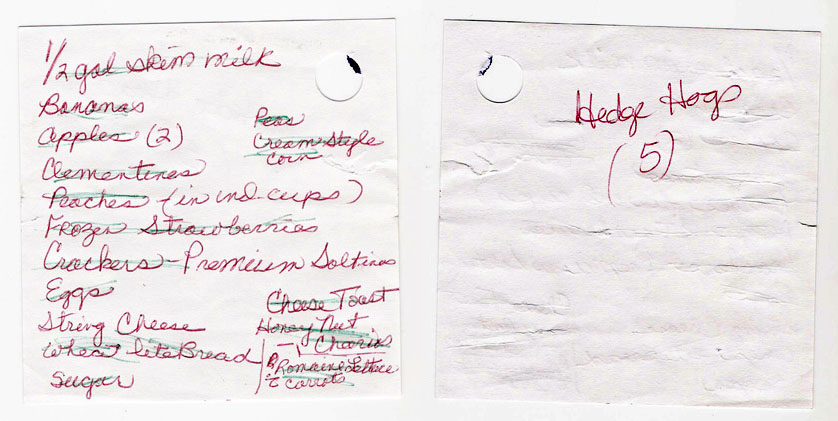 1/2 gal skim milk
Bananas
Apples (2)
Clementines
Peaches (in ind. cups)
Frozen Strawberries
Crackers - Premium Saltines
Eggs
String Cheese
Wheat lite Bread
Sugar
Peas
Cream-Style
Corn
Cheese Toast
Honey Nut
Cheerios
Romaine Lettuce
Carrots
Hedge Hogs
(5)